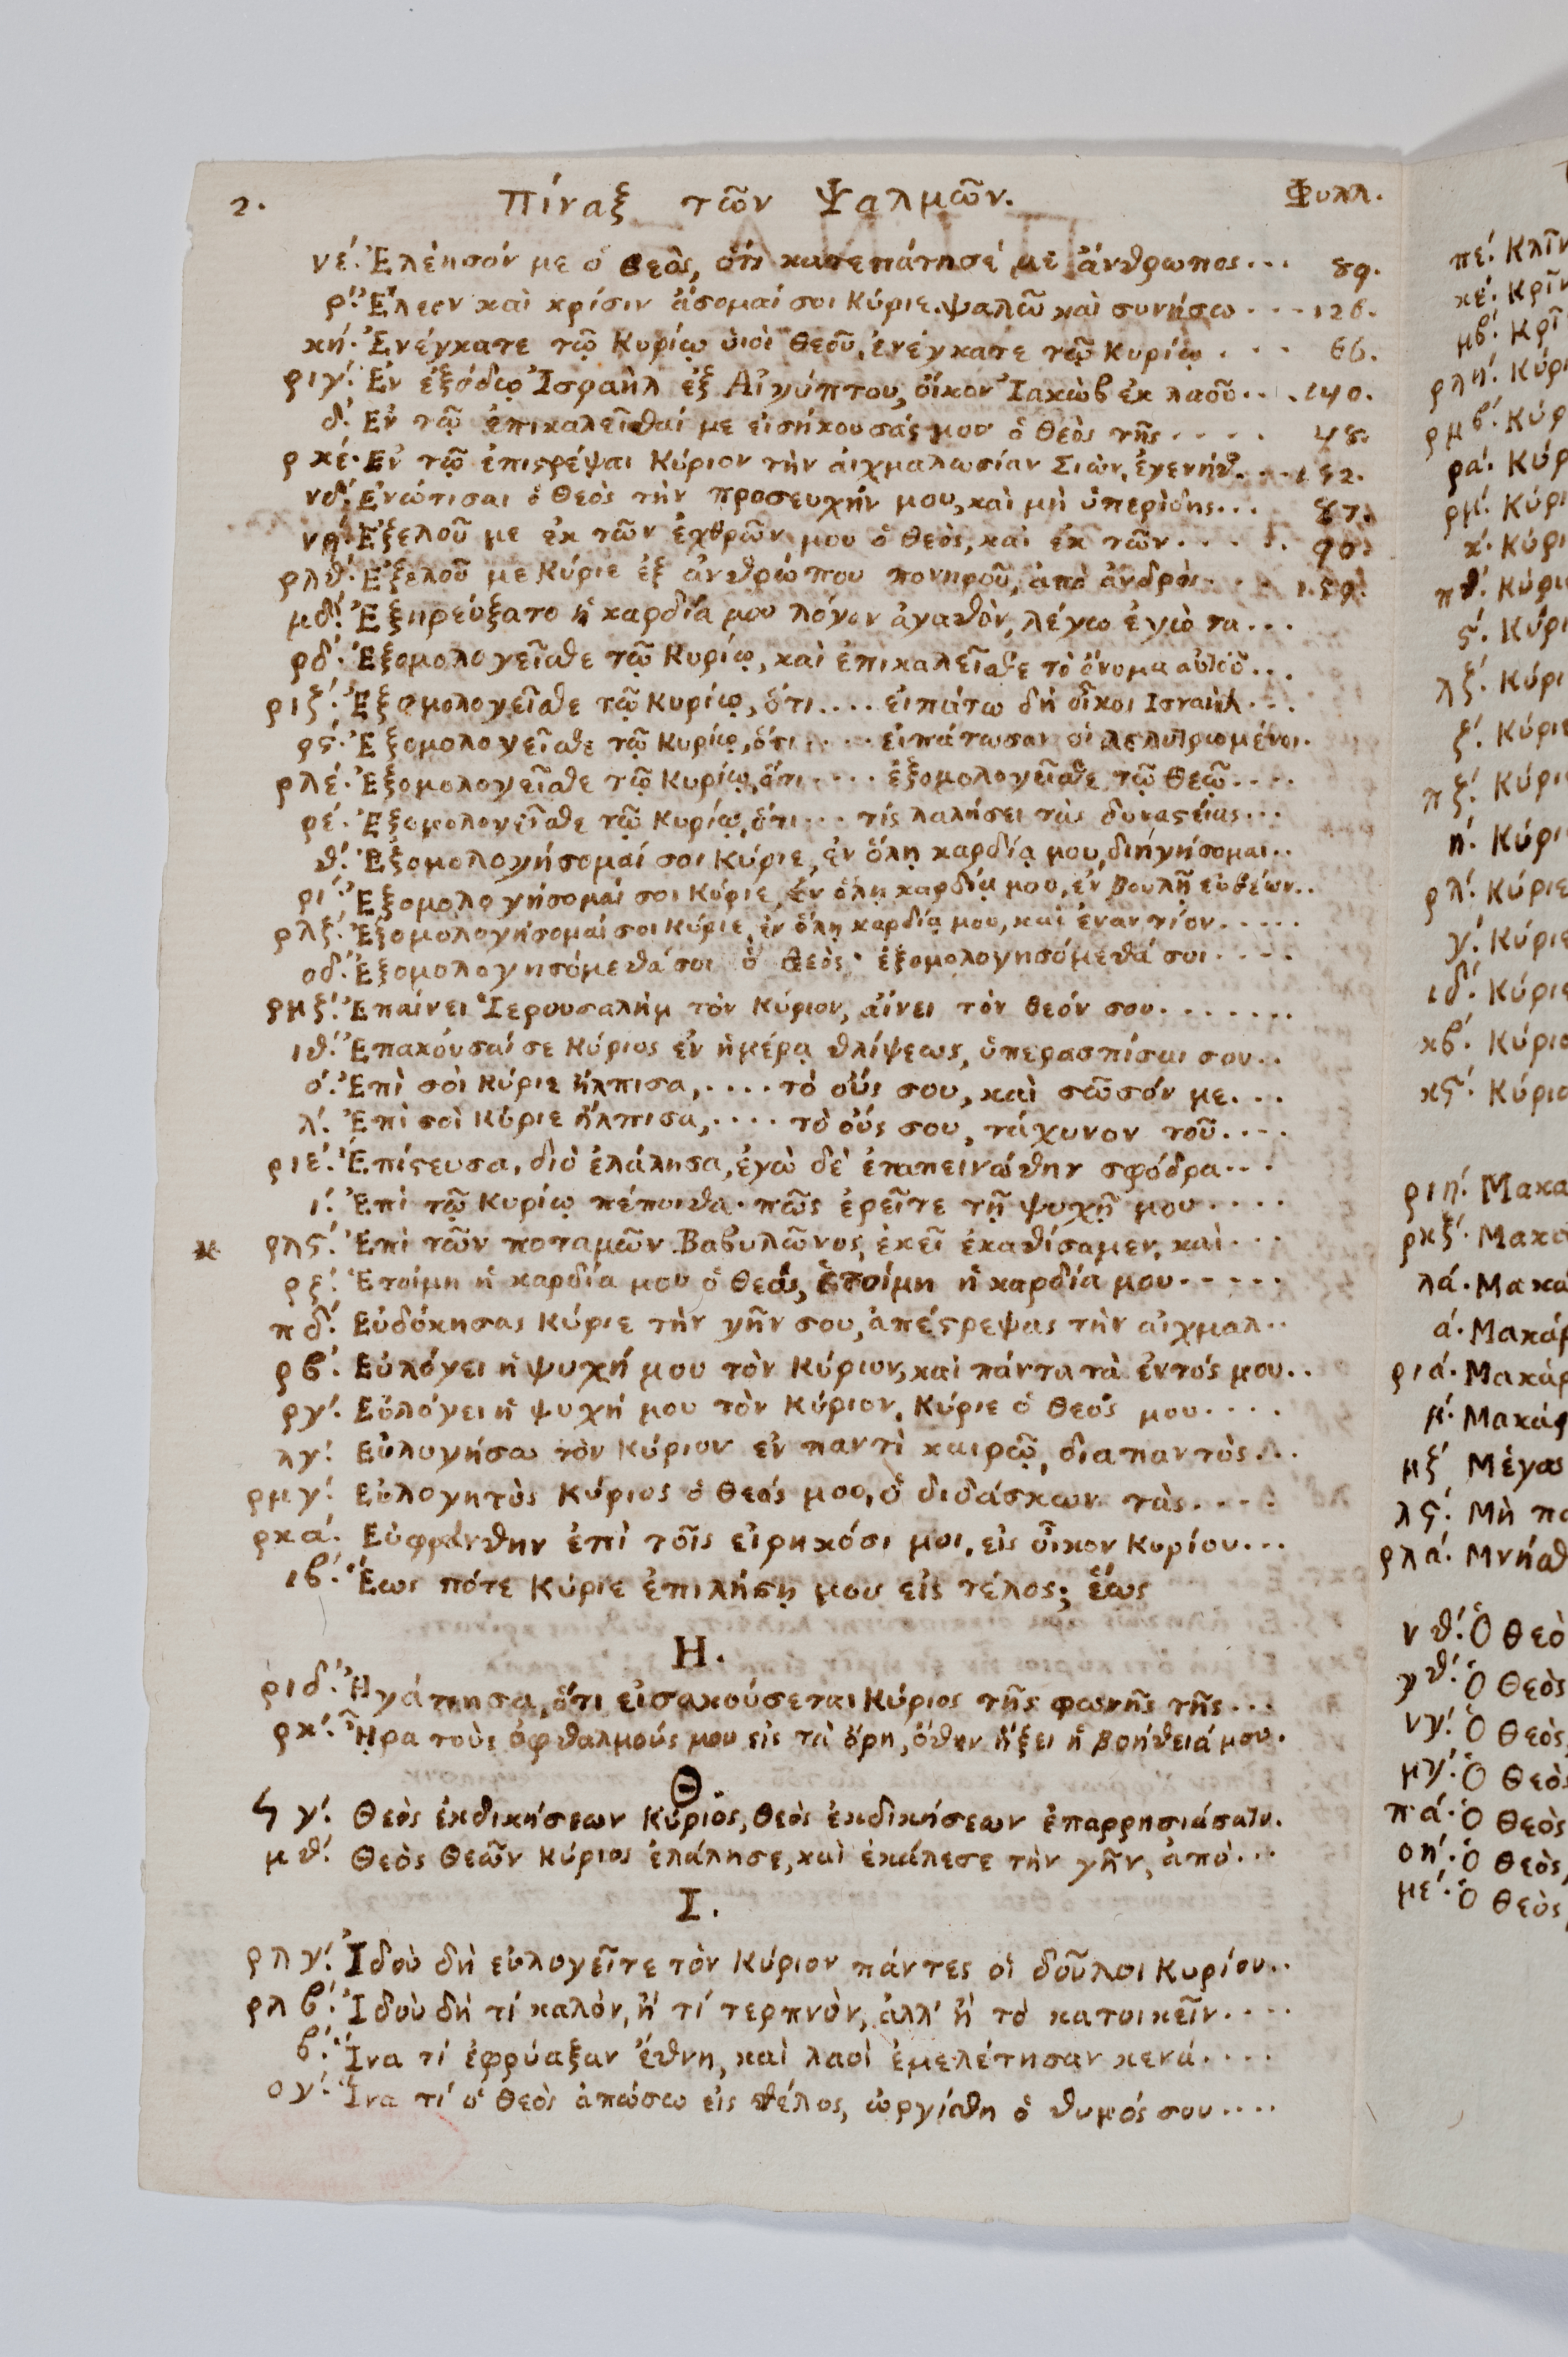 2. Πίναξ τῶν Ψαλμῶν. Φυλλ.
νέ. Ἐλέησόν με ὁ Θεὸς, ὅτι κατεπάτησέ με ἄνθρωπος... 89.
ρ΄. Ἔλεον καὶ κρίσιν ᾄσομαί σοι Κύριε. ψαλῶ καὶ συνήσω... 126.
κή. Ἐνέγκατε τῷ Κυρίῳ ὑιοὶ Θεοῦ, ἐνέγκατε τῷ Κυρίῳ... 66.
ριγ΄. Ἐν ἐξόδῳ Ἰσραὴλ ἐξ Αἰγύπτου, οἴκου Ἰακὼβ ἐκ λαοῦ... 140.
δ΄. Ἐν τῷ ἐπικαλεῖσθαί με εἰσήκουσάς μου ὁ Θεὸς τῆς.... 48.
ρκέ. Ἐν τῷ ἐπιϛρέψαι Κύριον τὴν ἀιχμαλωσίαν Σιὼν, ἐγενήθ... 152.
νδ΄. Ἐνώτισαι ὁ Θεὸς τὴν προσευχήν μου, καὶ μὴ ὑπερίδης... 87.
νή. Ἐξελοῦ με ἐκ τῶν ἐχθρῶν μου ὁ Θεὸς, καὶ ἐκ τῶν.... 90.
ρλθ΄. Ἐξελοῦ με Κύριε ἐξ ἀνθρώπου πονηροῦ, ἀπὸ ἀνδρὸς.. 159.
μδ΄. Ἐξηρεύξατο ἡ καρδία μου λόγον ἀγαθὸν, λέγω ἐγὼ τα...
ρδ΄. Ἐξομολογεῖσθε τῷ Κυρίῳ, καὶ ἐπικαλεῖσθε τὸ ὄνομα αὐτοῦ...
ριζ΄. Ἐξομολογεῖσθε τῷ Κυρίῳ, ὅτι.... εἰπάτω δὴ οἶκος Ισραὴλ...
ρϛ΄. Ἐξομολογεῖσθε τῷ Κυρίῳ, ὅτι..... εἰπάτωσαν οἱ λελυτρωμένοι.
ρλέ. Ἐξομολογεῖσθε τῷ Κυρίῳ, ὅτι.... ἐξομολογεῖσθε τῷ Θεῷ....
ρέ. Ἐξομολογεῖσθε τῷ Κυρίῳ, ὅτι... τίς λαλήσει τὰς δυναϛείας...
θ΄. Ἐξομολογήσομαί σοι Κύριε, ἐν ὅλῃ καρδίᾳ μου, διηγήσομαι..
ρι΄. Ἐξομολογήσομαί σοι Κύριε, ἐν ὅλῃ καρδίᾳ μου, ἐν βουλῇ εὐθέων..
ρλζ΄. Ἐξομολογήσομαί σοι Κύριε, ἐν ὅλῃ καρδίᾳ μου, καὶ ἐναντίον.....
οδ΄. Ἐξομολογησόμεθά σοι ὁ Θεὸς· ἐξομολογησόμεθά σοι....
ρμζ΄. Ἐπαίνει Ἱερουσαλὴμ τὸν Κύριον, αἴνει τὸν Θεόν σου.......
ιθ΄. Ἐπακούσαί σε Κύριος ἐν ἡμέρᾳ θλίψεως, ὑπερασπίσαι σου..
ό. Ἐπὶ σοὶ Κύριε ἤλπισα,.... τὸ οὖς σου, καὶ σῶσόν με...
λ΄. Ἐπὶ σοὶ Κύριε ἤλπισα,.... τὸ οὖς σου, τάχυνον τοῦ....
ριέ. Ἐπίϛευσα, διὸ ἐλάλησα, ἐγὼ δὲ ἐταπεινώθην σφόδρα...
ι΄. Ἐπὶ τῷ Κυρίῳ πέποιθα· πῶς ἐρεῖτε τῇ ψυχῇ μου.....
ρλϛ΄. Ἐπὶ τῶν ποταμῶν Βαβυλῶνος, ἐκεῖ ἐκαθίσαμεν, καὶ...
ρζ΄. Ἑτοίμη ἡ καρδία μου ὁ Θεός, ἑτοίμη ἡ καρδία μου.....
πδ΄. Εὐδόκησας Κύριε τὴν γῆν σου, ἀπέϛρεψας τὴν αἰχμαλ..
ρβ΄. Εὐλόγει ἡ ψυχή μου τὸν Κύριον, καὶ πάντα τὰ ἐντός μου..
ργ΄. Εὐλόγει ἡ ψυχή μου τὸν Κύριον, Κύριε ὁ Θεός μου....
λγ΄. Εὐλογήσω τὸν Κύριον ἐν παντὶ καιρῷ, διαπαντὸς...
ρμγ΄. Εὐλογητὸς Κύριος ὁ Θεός μου, ὁ διδάσκων τὰς....
ρκά. Εὐφράνθην ἐπὶ τοῖς εἰρηκόσι μοι, εἰς οἶκον Κυρίου...
ιβ΄. Ἕως πότε Κύριε ἐπιλήσῃ μου εἰς τέλος; ἕως
Η.
ριδ΄. Ἠγάπησα, ὅτι εἰσακούσεται Κύριος τῆς φωνῆς τῆς...
ρκ΄. Ἦρα τοὺς ὀφθαλμούς μου εἰς τὰ ὄρη, ὅθεν ἥξει ἡ βοήθειά μου.
Θ.
Ϟγ΄. Θεὸς ἐκδικήσεων Κύριος, Θεὸς ἐκδικήσεων ἐπαρρησιάσατο.
μθ΄. Θεὸς Θεῶν Κύριος ἐλάλησε, καὶ ἐκάλεσε τὴν γῆν, ἀπὸ...
Ι.
ρλγ΄. Ἰδοὺ δὴ εὐλογεῖτε τὸν Κύριον πάντες οἱ δοῦλοι Κυρίου..
ρλβ΄. Ἰδοὺ δὴ τί καλὸν, ἢ τί τερπνὸν, ἀλλ' ἢ τὸ κατοικεῖν....
β΄. Ἵνα τί ἐφρύαξαν ἔθνη, καὶ λαοὶ ἐμελέτησαν κενά....
ογ΄. Ἵνα τί ὁ Θεὸς ἀπώσω εἰς τέλος, ὠργίσθη ὁ θυμός σου....
πέ. Κλῖν
κέ. Κρῖν
μβ΄. Κρῖ
ρλή. Κύρι
ρμβ΄. Κύρ
ρά. Κύρ
ρμ΄. Κύρι
κ΄. Κύρι
πθ΄. Κύρι
ϛ΄. Κύρι
λζ΄. Κύρι
ζ΄. Κύριε
πζ΄. Κύρι
ή. Κύρι
ρλ΄. Κύριε
γ΄. Κύριε
ιδ΄. Κύριε
κβ΄. Κύριο
κϛ΄. Κύριο
ριή. Μακα
ρκζ΄. Μακα
λά. Μακά
ά. Μακάρ
ριά. Μακάρ
μ΄. Μακάρ
μζ΄ Μέγας
λϛ΄. Μὴ πα
ρλά. Μνήσθ
νθ΄. Ὁ Θεὸ
Ὁ Θεὸς
νγ΄. Ὁ Θεὸς
μγ΄. Ὁ Θεὸς
πά. Ὁ Θεὸς
οή. Ὁ Θεὸς,
μέ. Ὁ Θεὸς